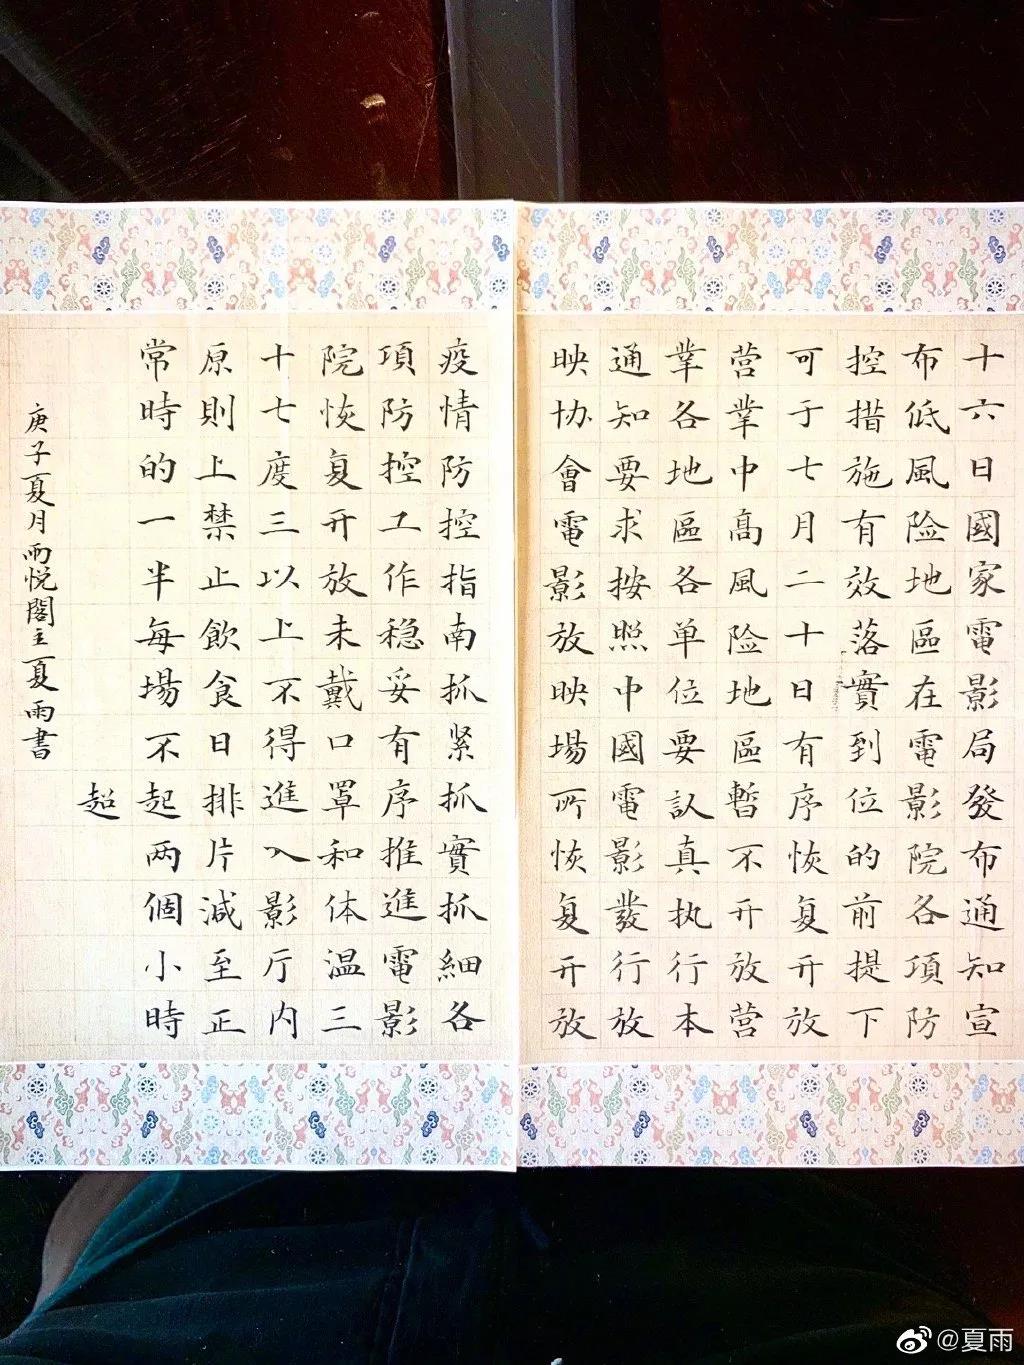 十六日國家電影局發布通知宣
布低風险地區在電影院各項防
控措施有效落實到位的前提下
可于七月二十日有序恢复开放
营業中高風险地區暫不开放营
業各地區各单位要認真执行本
通知要求按照中國電影發行放
映协會電影放映場所恢复开放
疫情防控指南抓紧抓實抓细各
項防控工作稳妥有序推進電影
院恢复开放未戴口罩和体温三
十七度三以上不得進入影厅内
原則上禁止飲食日排片減至正
常時的一半每場不起两個小時
超
庚子夏月雨悦閣主夏雨書
@夏雨